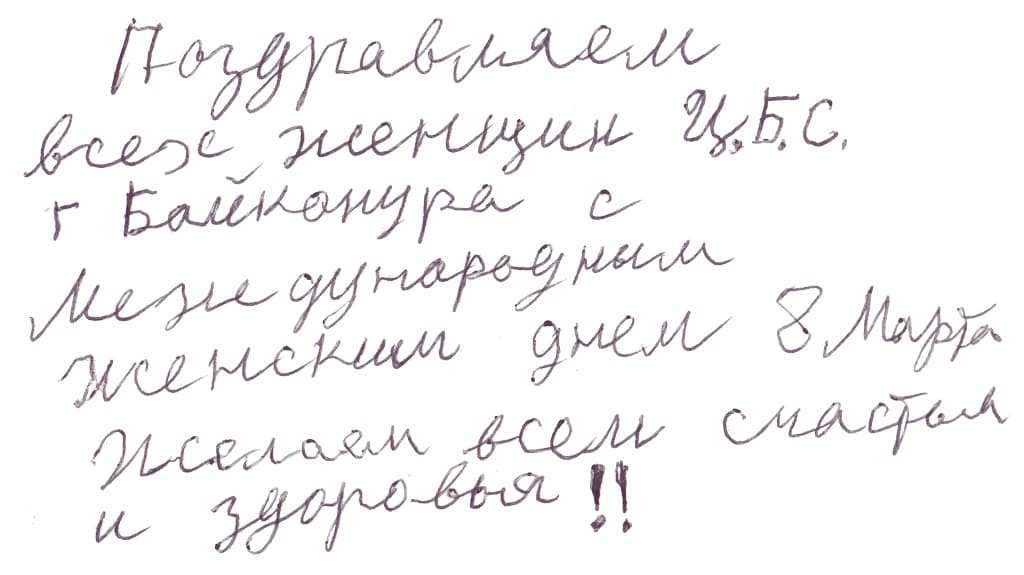 Поздравляем
всех женщин Ц.Б.С.
г Байконура с
Международным
Женским днем 8 Марта
Желаем всем счастья
и здоровья!!